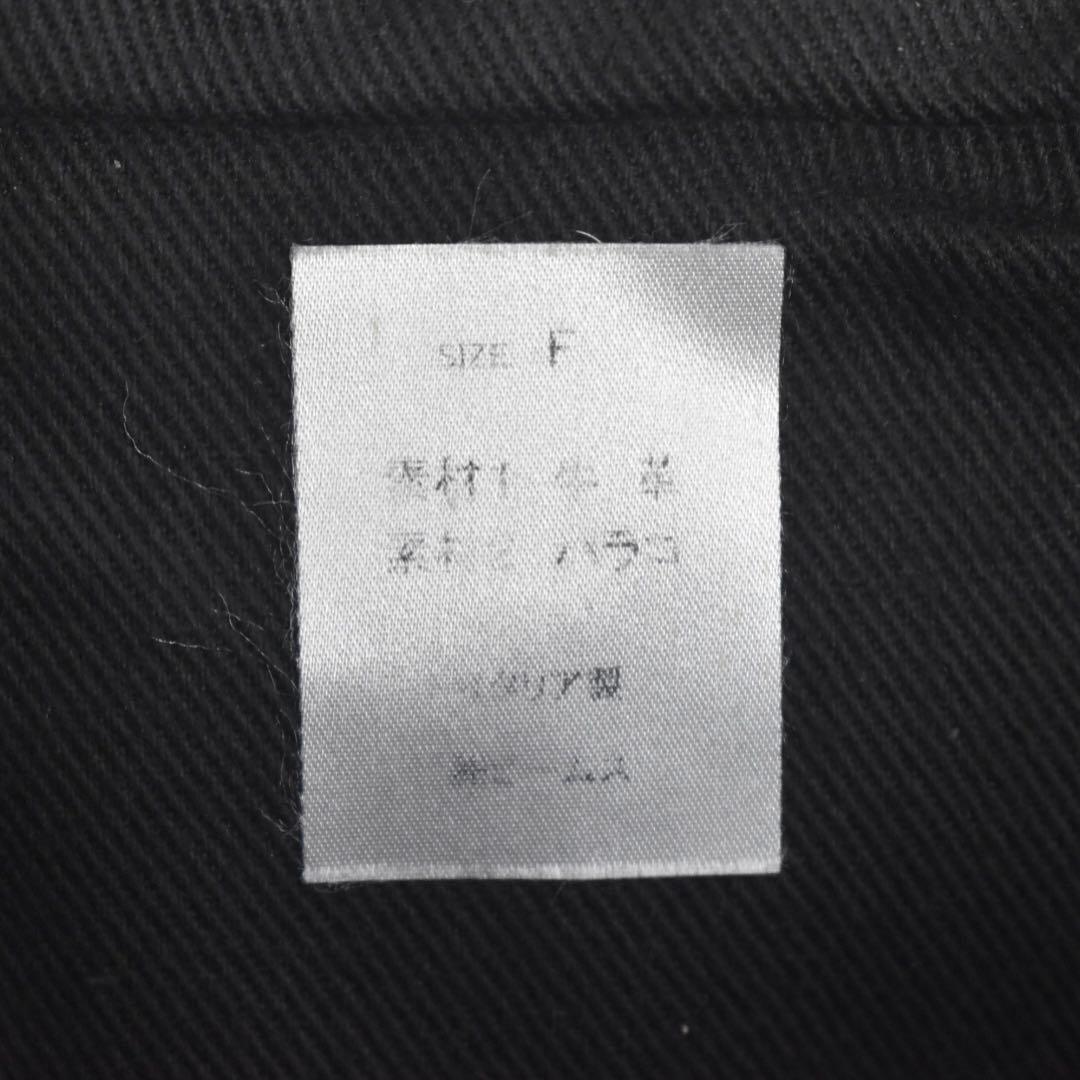 SIZE F
素材1 牛 革
素材2 ハラコ
イタリア製
㈱ビームス